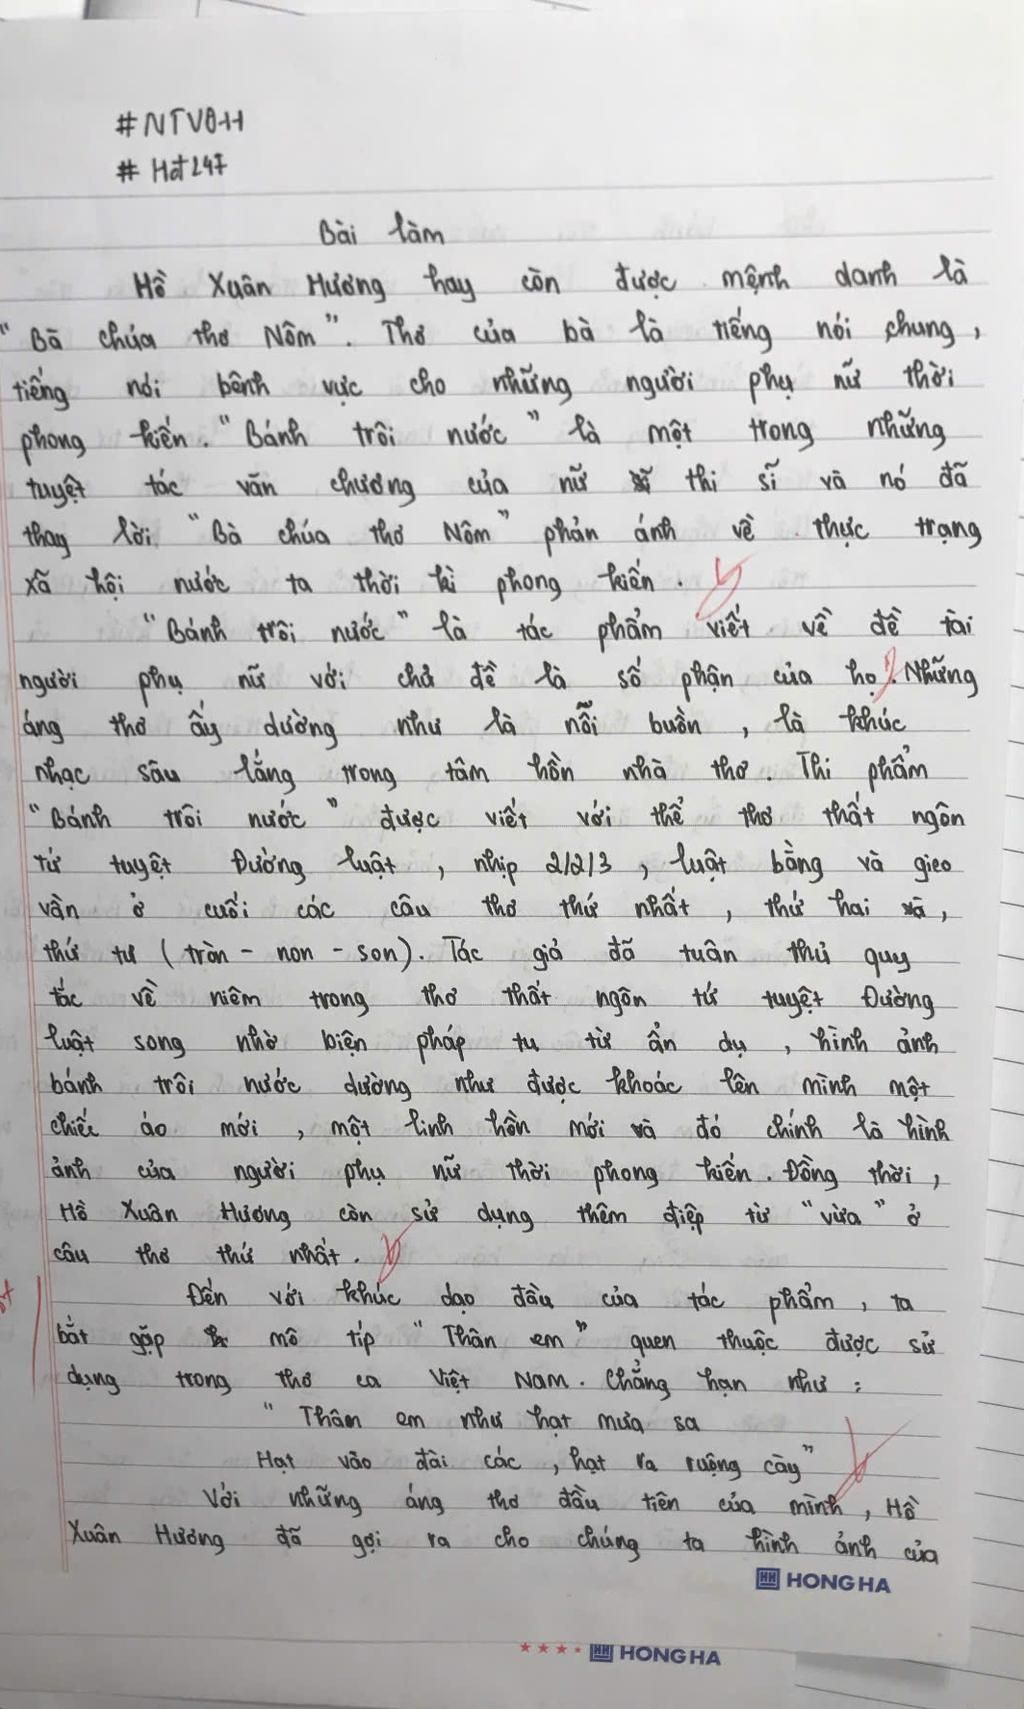 #NTV011
# Hot247
Bài làm
Hồ Xuân Hương hay còn được mệnh danh là
"Bà chúa thơ Nôm". Thơ của bà là tiếng nói chung,
tiếng nói bênh vực cho những người phụ nữ thời
phong kiến. "Bánh trôi nước" là một trong những
tuyệt tác văn chương của nữ thi sĩ và nó đã
thay lời "Bà chúa thơ Nôm" phản ánh về thực trạng
xã hội nước ta thời kì phong kiến.
"Bánh trôi nước" là tác phẩm viết về đề tài
người phụ nữ với chủ đề là số phận của họ. Những
áng thơ ấy dường như là nỗi buồn, là khúc
nhạc sâu lắng trong tâm hồn nhà thơ. Thi phẩm
"Bánh trôi nước" được viết với thể thơ thất ngôn
tứ tuyệt Đường luật, nhịp 2/2/3, luật bằng và gieo
vần ở cuối các câu thơ thứ nhất, thứ hai và,
thứ tư (tròn - non - son). Tác giả đã tuân thủ quy
tắc về niêm trong thơ thất ngôn tứ tuyệt Đường
luật song nhờ biện pháp tu từ ẩn dụ, hình ảnh
bánh trôi nước dường như được khoác lên mình một
chiếc áo mới, một linh hồn mới và đó chính là hình
ảnh của người phụ nữ thời phong kiến. Đồng thời,
Hồ Xuân Hương còn sử dụng thêm điệp từ "vừa" ở
câu thơ thứ nhất.
Đến với khúc dạo đầu của tác phẩm, ta
bắt gặp mô típ "Thân em" quen thuộc được sử
dụng trong thơ ca Việt Nam. Chẳng hạn như:
"Thân em như hạt mưa sa
Hạt vào đài các, hạt ra ruộng cày"
Với những áng thơ đầu tiên của mình, Hồ
Xuân Hương đã gợi ra cho chúng ta hình ảnh của
HONG HA
HONG HA